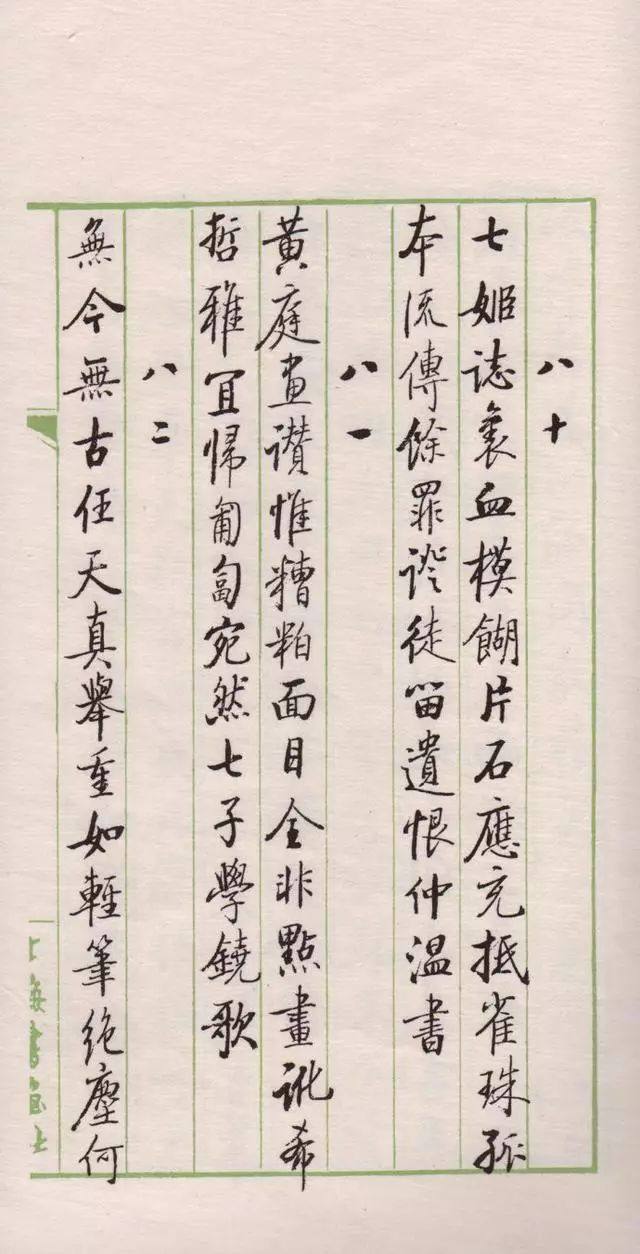 八十
七姬誌裏血模餬片石應充抵雀珠孤
本流傳餘罪證徒留遺恨仲溫書
八一
黃庭畫讚惟糟粕面目全非點畫訛希
哲雅宜歸匍匐宛然七子學鐃歌
八二
無今無古任天真舉重如輕筆絶塵何
上海書畫社